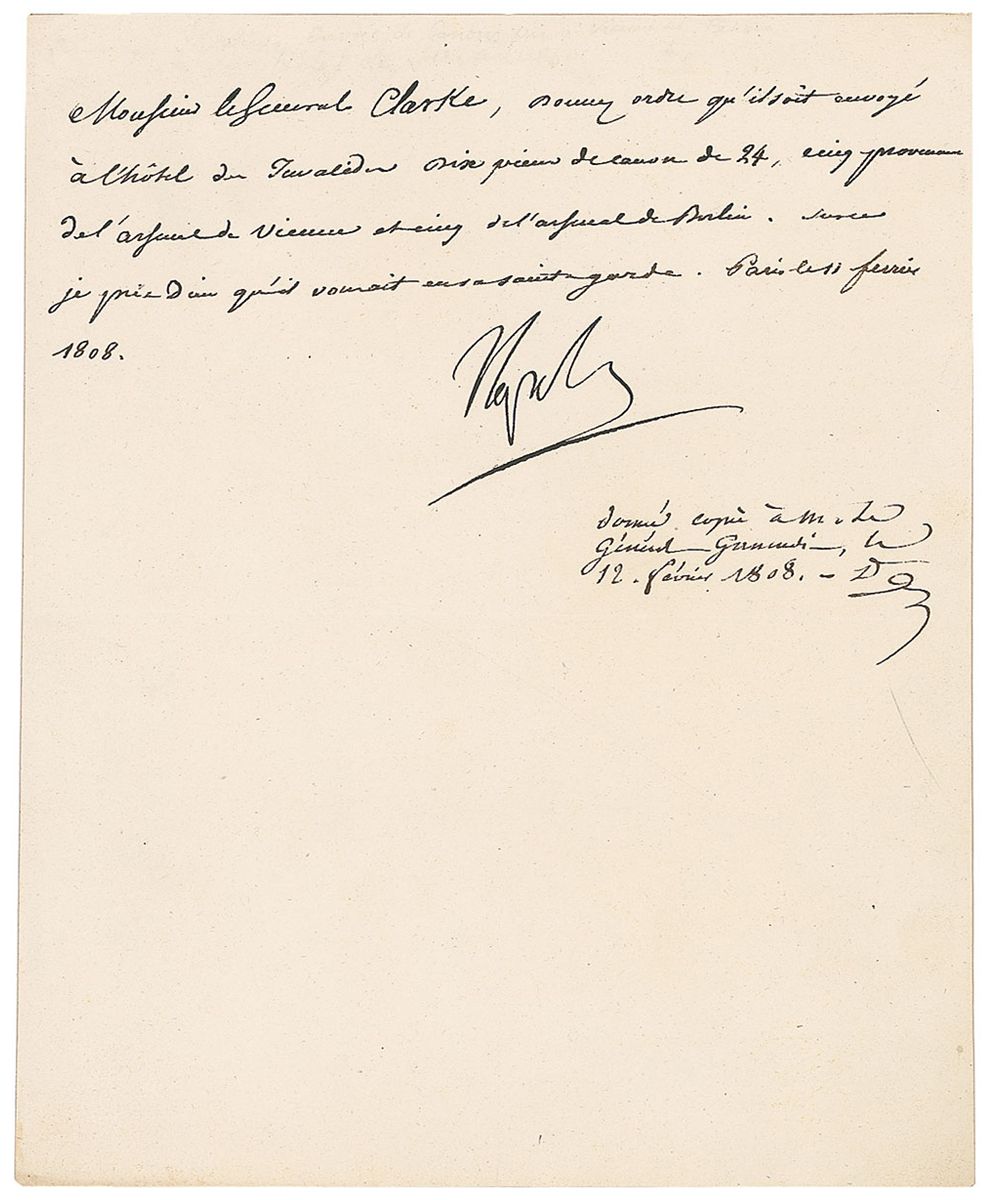 Monsieur le General Clarke, Donnez ordre qu'il soit envoyé
à l'hôtel des Invalides dix pièces de canon de 24, cinq provenans
de l'arsenal de Vienne et cinq de l'arsenal de Berlin. Sur ce
je prie Dieu qu'il vous ait en sa sainte garde. Paris le 11 fevrier
1808.
donné copie à M. le
Général Gassendi, le
12. février 1808. -